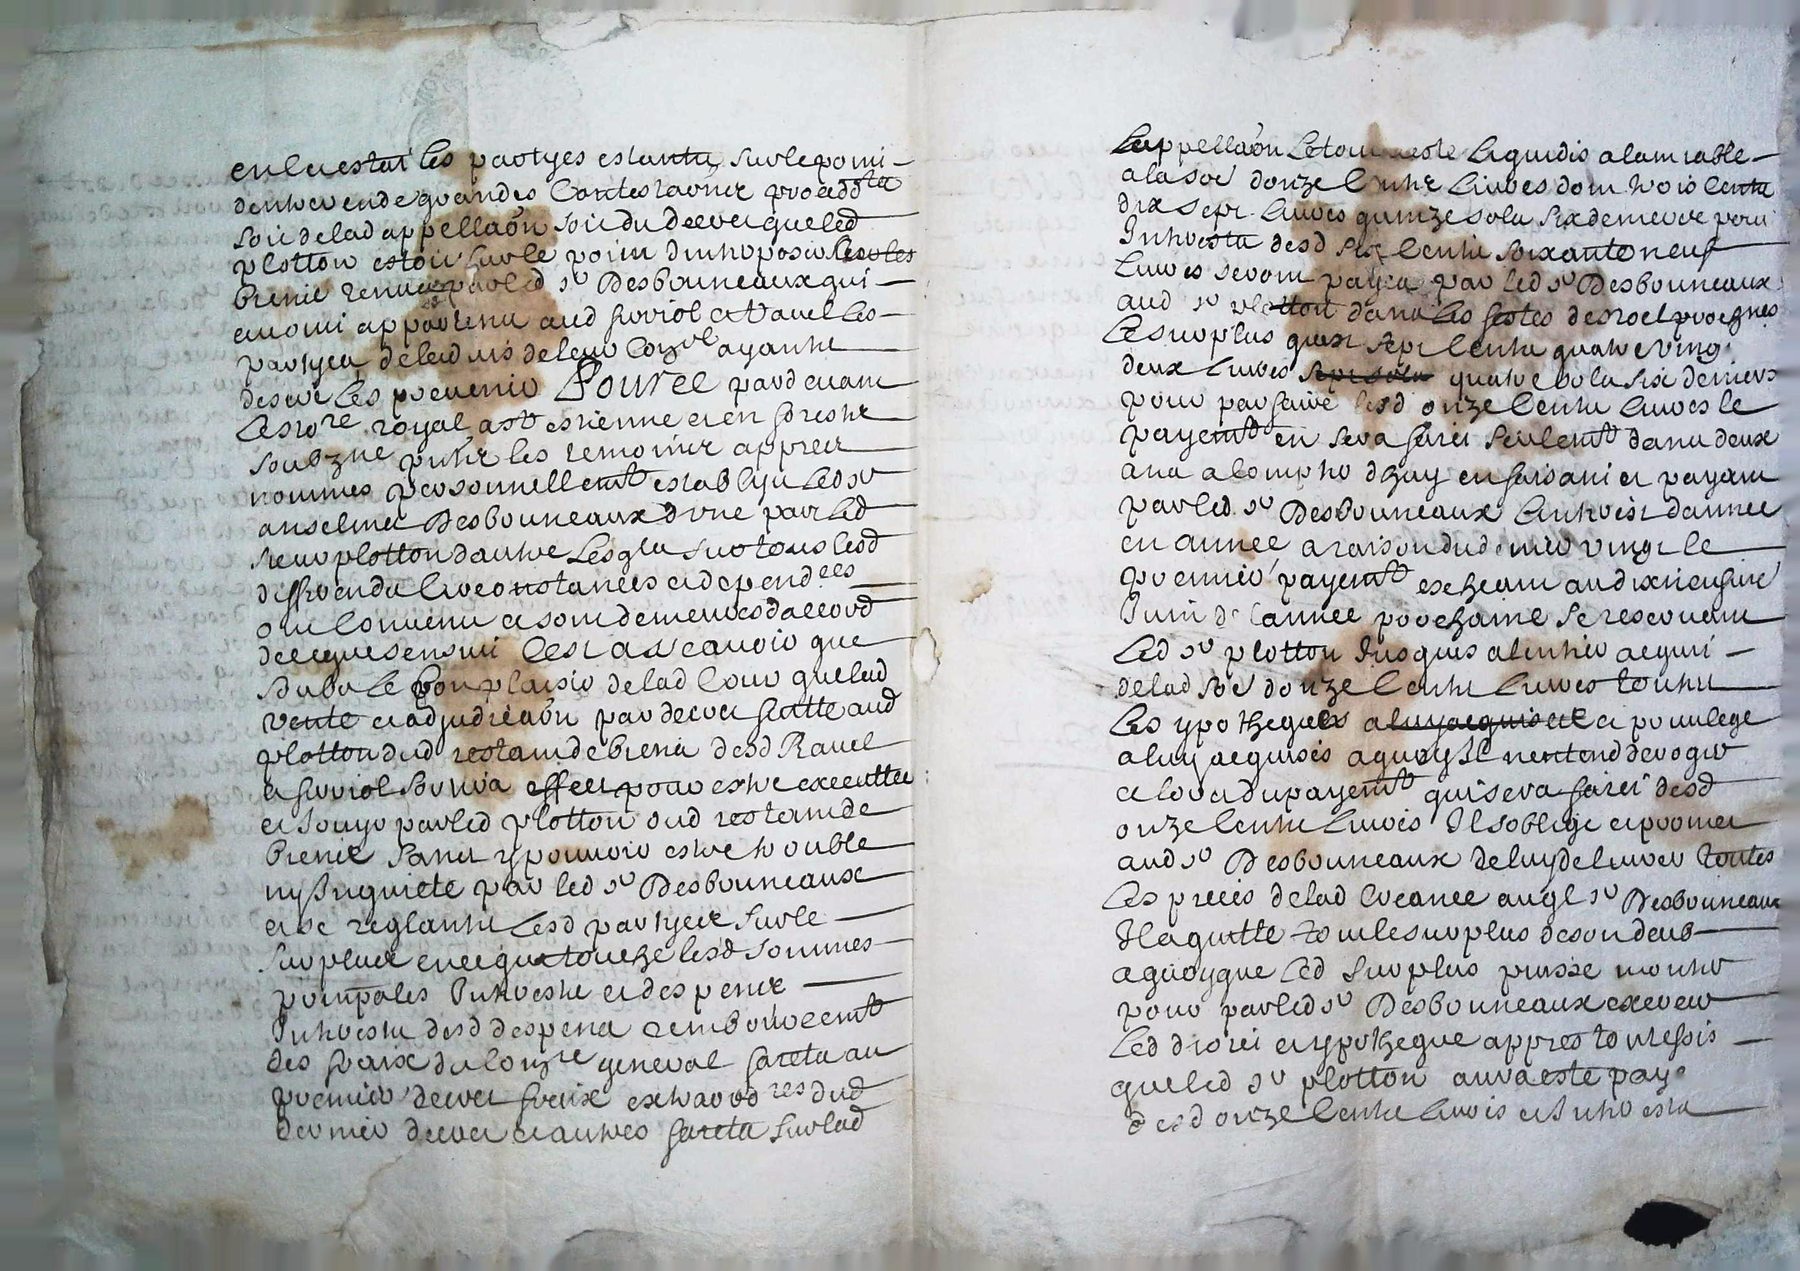 en cet estat les partyes estants sur le point
dentrer en de grandes contestaons procedts
soit de lad appellaon soit du decret que led
plotton estoit sur le point dinterposer
bienz tenus par led sr Desbouneaux qui
auoint appartenu aud furiol et dauel les
partyes de laduis de leur conzel ayants
desire les preuenir Pource pard euant
le nore royal a st estienne et en forestz
soubzne puis les temoins appres
nommes personnellemt estably led sr
anselme Desbouneaux dune part led
sieur plotton dautre lesqls sur tous lesd
differends circonstances et dependces
ont conuenu et sont demeures daccord
de ce que sensuit Cest a scauoir que
soubz le bon plaisir de lad Cour que lad
vente et adjudicaon par decret faitte aud
plotton dud restant de biens desd Rauel
et furiol sortira effect pour estre executtee
et jouyr par led plotton dud restant de
bienz sans y pouuoir estre trouble
ny Inquiete par led sr Desbouneaux
et se reglants lesd partyes sur le
surplus en ce que touche lesd sommes
prinpales Intrests et despens
Intrests desd despens remboursemt
des fraix du conzre general faicts au
premier decret fraix extraordres dud
dernier decret et autres faicts sur lad
lappellaon le tout a este liquidis a lamiable
a la soe donze cents liures dont trois cents
dix sept liures quinze sols six deniers pour
Intrests desd six cents soixante neuf
liures seront payes par led sr Desbouneaux
aud sr plotton dans les festes de noel proegnes
le surplus quest sept cents quatre ving
deux liures quatre sols six deniers
pour parfaire lesd onze cents liures le
payemt en sera faict seulemt dans deux
ans a compter dhuy en faisant et payant
par led sr Desbouneaux lintrest dannee
en annee a raison du denier vingt le
premier payemt escheant au dixneufuie
Juin de lannee prochaine se reseruant
led sr plotton Jusques a lentier acquit
de lad soe donze cents liures touts
les ypotheques a luy acquise et priuilege
a luy acquises a quoy Il nentend deroger
et lors du payemt qui sera faict desd
onze cents liures Il soblige et promet
aud sr Desbouneaux de luy deliurer toutes
les pieces de lad creance auql sr Desbouneaux
Il aquitte tout le surplus de son deub
a quoy que led surplus puisse monter
pour par led sr Desbouneaux exercer
led droit et ypotheque appres toutesfois
que led sr plotton aura este paye
desd onze cents liures et Intrests